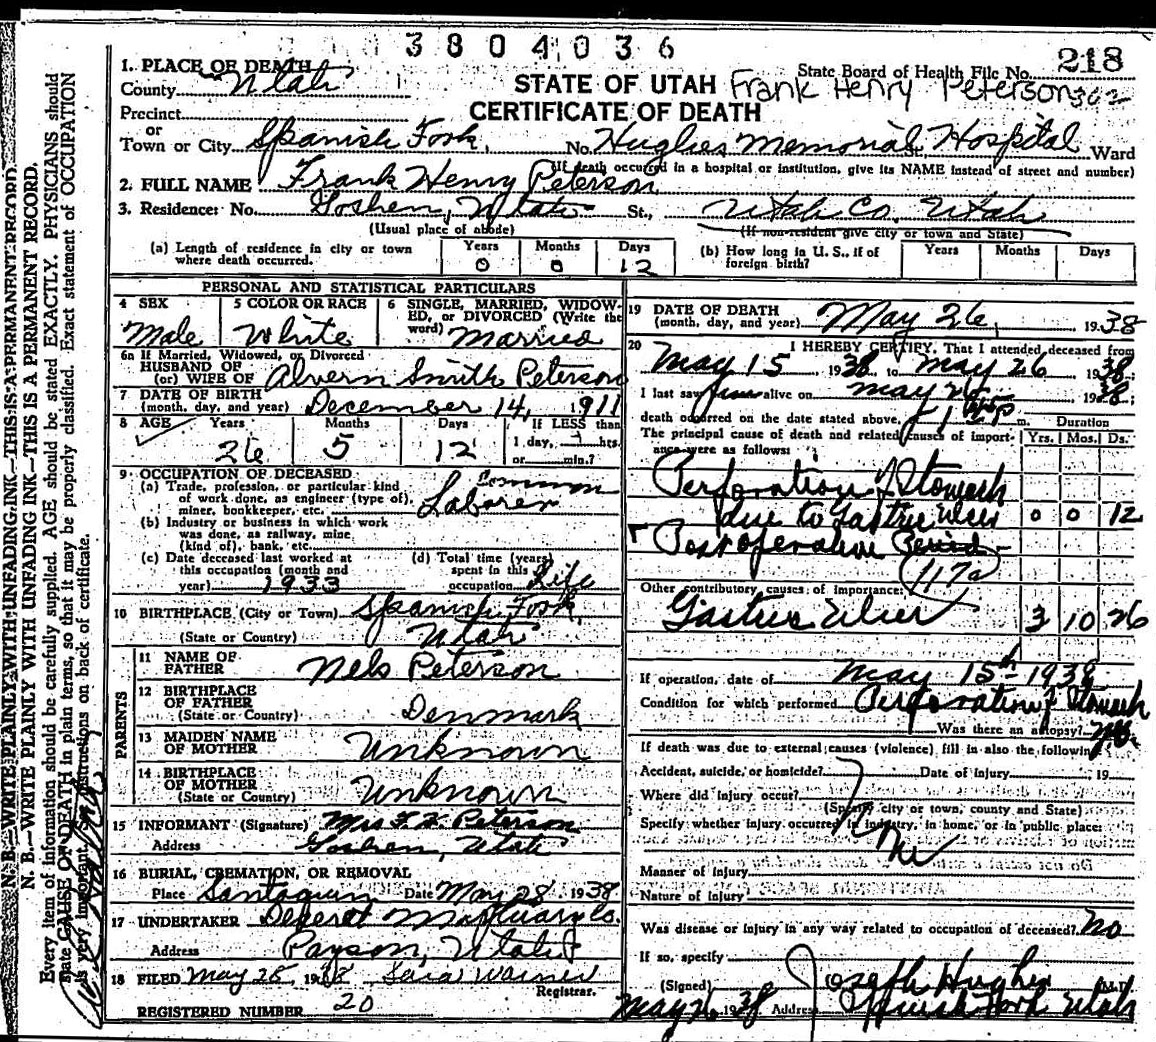 3804036
218
1. PLACE OF DEATH
STATE OF UTAH
State Board of Health File No.
Frank Henry Peterson 362
County Utah
CERTIFICATE OF DEATH
Precinct
or
Town or City Spanish Fork, No. Hughes Memorial St., Hospital Ward
(If death occurred in a hospital or institution, give its NAME instead of street and number)
2. FULL NAME Frank Henry Peterson
3. Residence: No. Goshen, Utah St., Utah Co. Utah
(Usual place of abode) (If non-resident give city or town and State)
(a) Length of residence in city or town where death occurred. Years 0 Months 0 Days 12
(b) How long in U. S., if of foreign birth? Years Months Days
PERSONAL AND STATISTICAL PARTICULARS
4 SEX Male
5 COLOR OR RACE White
6 SINGLE, MARRIED, WIDOWED, or DIVORCED (Write the word) Married
6a If Married, Widowed, or Divorced
HUSBAND OF
(or) WIFE OF Alvern Smith Peterson
7 DATE OF BIRTH
(month, day, and year) December 14, 1911
8 AGE Years 26 Months 5 Days 12 If LESS than 1 day, hrs. or min.?
9 OCCUPATION OF DECEASED
(a) Trade, profession, or particular kind of work done, as engineer (type of), miner, bookkeeper, etc. Common Laborer
(b) Industry or business in which work was done, as railway, mine (kind of), bank, etc.
(c) Date deceased last worked at this occupation (month and year) 1933
(d) Total time (years) spent in this occupation Life
10 BIRTHPLACE (City or Town) Spanish Fork,
(State or Country) Utah
PARENTS
11 NAME OF FATHER Nels Peterson
12 BIRTHPLACE OF FATHER
(State or Country) Denmark
13 MAIDEN NAME OF MOTHER Unknown
14 BIRTHPLACE OF MOTHER
(State or Country) Unknown
15 INFORMANT (Signature) Mrs F. H. Peterson
Address Goshen, Utah
16 BURIAL, CREMATION, OR REMOVAL
Place Santaquin Date May 28 1938
17 UNDERTAKER Deseret Mortuary Co.
Address Payson, Utah
18 FILED May 28, 1938 Sara Warner
Registrar.
REGISTERED NUMBER 20
19 DATE OF DEATH
(month, day, and year) May 26, 1938
20 I HEREBY CERTIFY, That I attended deceased from
May 15 1938 to May 26 1938;
I last saw him alive on May 26 1938;
death occurred on the date stated above, m. Duration
The principal cause of death and related causes of importance were as follows: Yrs. Mos. Ds.
Perforation of Stomach
due to Gastric Ulcer 0 0 12
Post operative Period
117a
Other contributory causes of importance:
Gastric Ulcer 3 10 26
If operation, date of May 15th 1938
Condition for which performed Perforation of Stomach
Was there an autopsy? No.
If death was due to external causes (violence) fill in also the following:
Accident, suicide, or homicide? Date of injury 19
Where did injury occur?
(Specify city or town, county and State)
Specify whether injury occurred in industry, in home, or in public place:
No
Manner of injury
Nature of injury
Was disease or injury in any way related to occupation of deceased? No
If so, specify
(Signed) Joseph Hughes M.D.
May 26 1938 Address Spanish Fork Utah
N. B.—WRITE PLAINLY WITH UNFADING INK—THIS IS A PERMANENT RECORD.
N. B.—WRITE PLAINLY WITH UNFADING INK—THIS IS A PERMANENT RECORD.
Every item of information should be carefully supplied. AGE should be stated EXACTLY. PHYSICIANS should
state CAUSE OF DEATH in plain terms, so that it may be properly classified. Exact statement of OCCUPATION
is very important. See instructions on back of certificate.